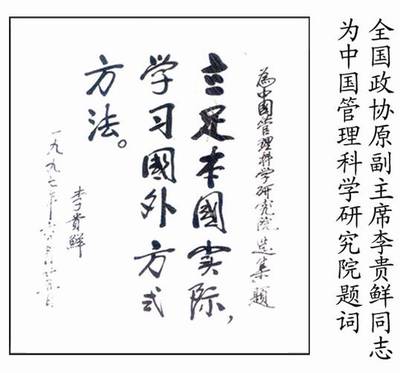 全国政协原副主席李贵鲜同志
为中国管理科学研究院题词
為中國管理科学研究院选集题
立足本國实际,
学习國外方式
方法。
李貴鲜
一九九七年